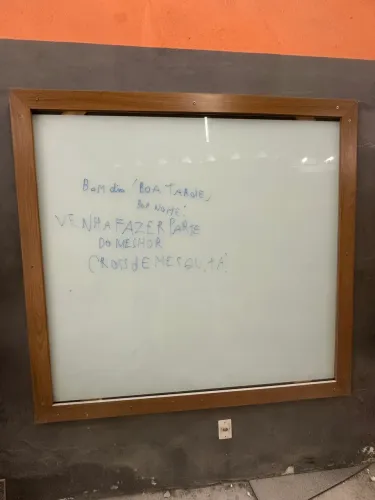 Bom dia 'BOA TARDE,
BOA NOITE'
VENHA FAZER PARTE
DO MELHOR
CROSS DE MESQUITA!